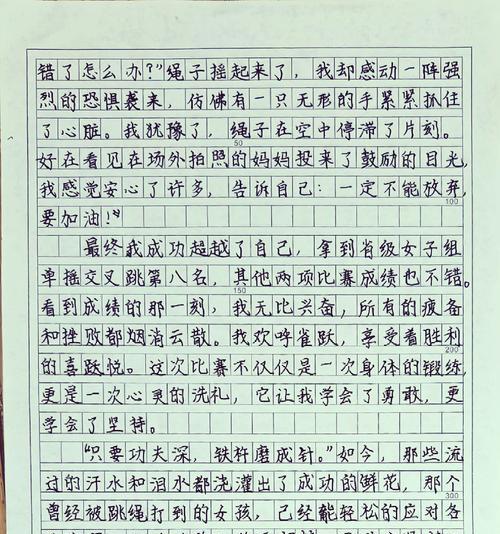 错了怎么办?”绳子摇起来了，我却感动一阵强
烈的恐惧袭来，仿佛有一只无形的手紧紧抓住
了心脏。我犹豫了，绳子在空中停滞了片刻。
50
好在看见在场外拍照的妈妈投来了鼓励的目光，
我感觉安心了许多，告诉自己：一定不能放弃，
100
要加油!”
最终我成功超越了自己，拿到省级女子组
单摇交叉跳第八名，其他两项比赛成绩也不错。
150
看到成绩的那一刻，我无比兴奋，所有的疲备
和挫败都烟消云散。我欢呼雀跃，享受着胜利
200
的喜跃悦。这次比赛不仅仅是一次身体的锻练，
更是一次心灵的洗礼，它让我学会了勇敢，更
学会了坚持。
“只要功夫深，铁杵磨成针。”如今，那些流
过的汗水和泪水都浇灌出了成功的鲜花，那个
300
曾经被跳绳打到的女孩，已经能轻松的应对各